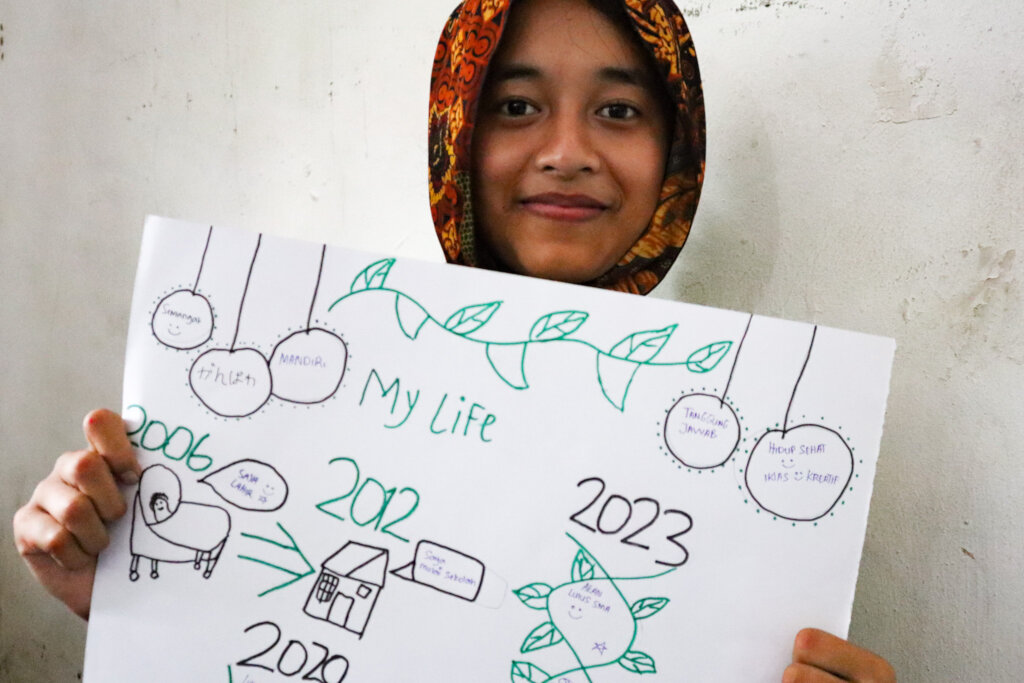 Semangat
がんばれ
MANDIRI
My Life
TANGGUNG
JAWAB
HIDUP SEHAT
IKLAS KREATIF
2006
SAYA
LAHIR
2012
Saya
mulai sekolah
2023
AKAN
LULUS SMA
2020